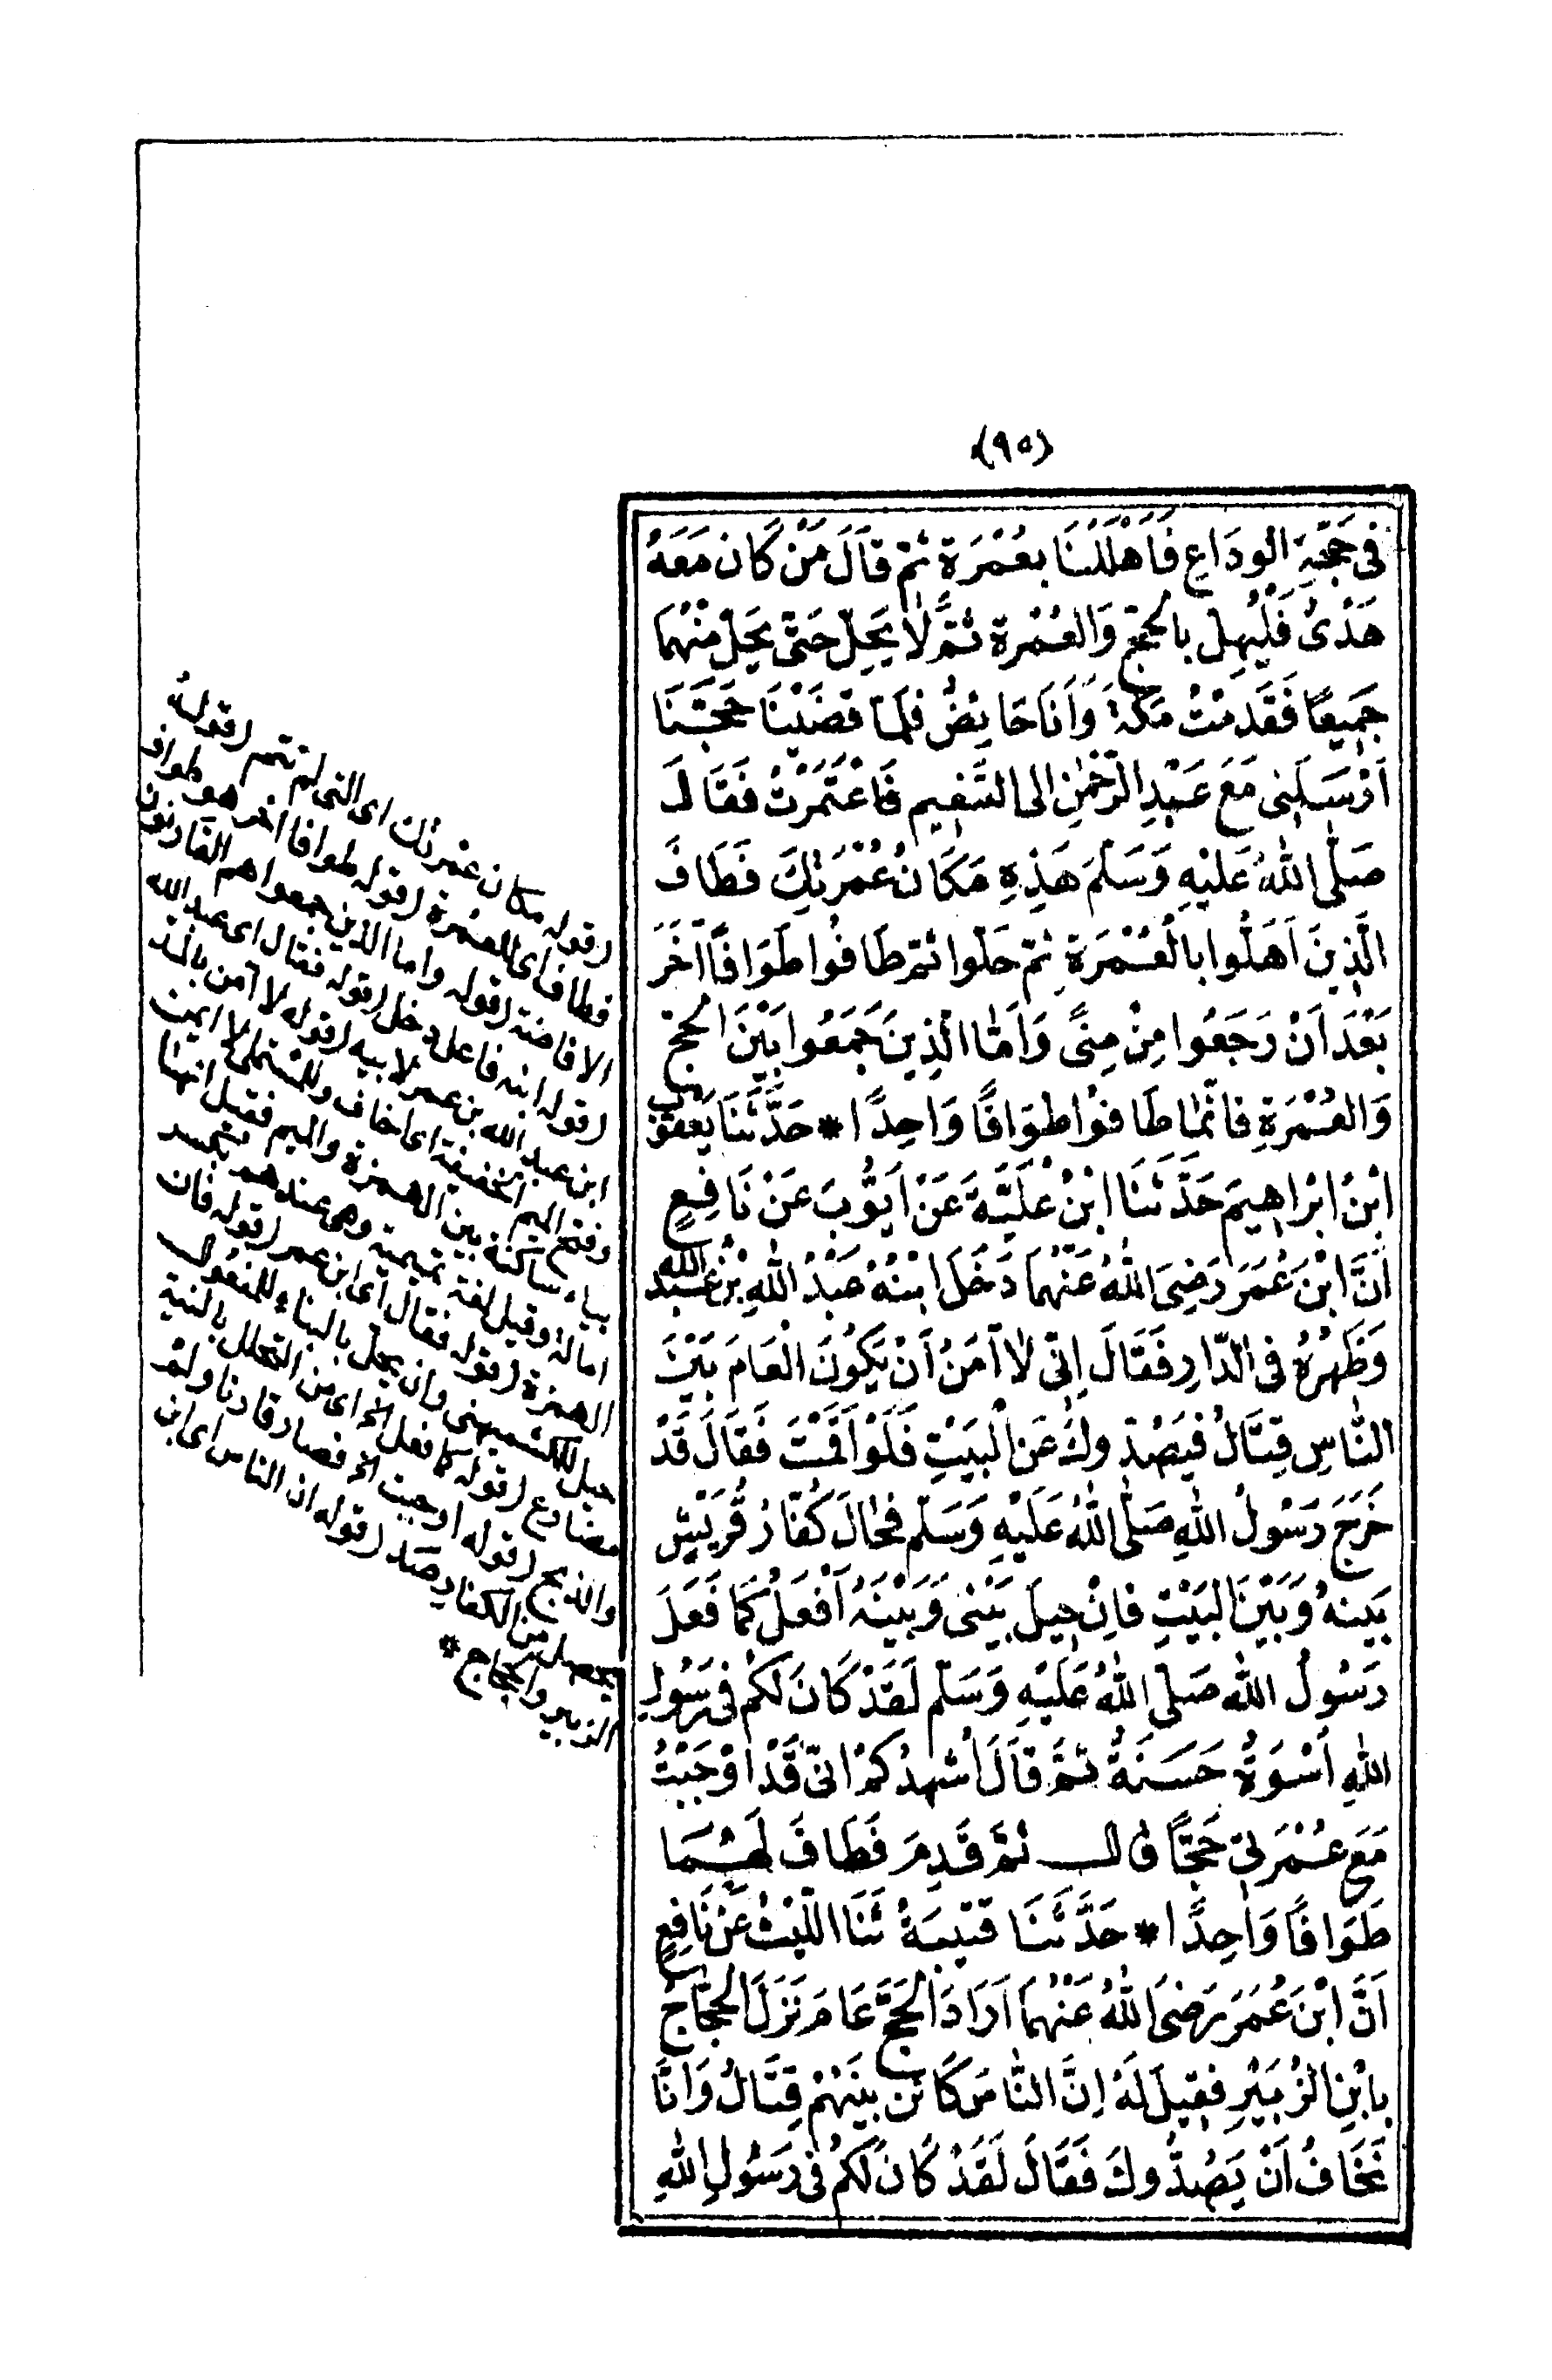 (٩٥)
فِى حَجَّةِ الْوِدَاعِ فَاَهْلَلْنَا بِعُمْرَةٍ ثُمَّ قَالَ مَنْ كَانَ مَعَهُ
هَدْىٌ فَلْيُهِلّ بِالْحَجِّ وَالْعُمْرَةِ ثُمَّ لَا يَحِلّ حَتَّى يَحِلّ مِنْهُمَا
جَمِيعًا فَقَدِمْتُ مَكَّةَ وَاَنَا حَائِضٌ فَلَمَّا قَضَيْنَا حَجَّنَا
اَرْسَلَنِى مَعَ عَبْدِ الرَّحْمٰنِ اِلى التَّنْعِيمِ فَاعْتَمَرْتُ فَقَالَ
صَلَّى اللهُ عَلَيْهِ وَسَلَّمَ هَذِهِ مَكَانُ عُمْرَتِكَ فَطَافَ
الَّذِينَ اَهَلُّوا بِالْعُمْرَةِ ثُمّ حَلّوا ثُمّ طَافُوا طَوَافًا آخَرَ
بَعْدَ اَنْ رَجَعُوا مِنْ مِنًى وَاَمَّا الَّذِينَ جَمَعُوا بَيْنَ الْحَجِّ
وَالْعُمْرَةِ فَاِنَّمَا طَافُوا طَوَافًا وَاحِدًا * حَدَّثَنَا يَعْقُوبُ
ابْنُ اِبْرَاهِيمَ حَدَّثَنَا ابْنُ عُلَيَّةَ عَنْ اَيُّوبَ عَنْ نَافِعٍ
اَنَّ ابْنَ عُمَرَ رَضِىَ اللهُ عَنْهُمَا دَخَلَ ابْنُهُ عَبْدُ اللهِ بْنُ عَبْدِ اللهِ
وَظَهْرُهُ فِى الدَّارِ فَقَالَ اِنِّى لَا آمَنُ اَنْ يَكُونَ الْعَامَ بَيْنَ
النَّاسِ قِتَالٌ فَيَصُدُّوكَ عَنِ الْبَيْتِ فَلَوْ اَقَمْتَ فَقَالَ قَدْ
خَرَجَ رَسُولُ اللهِ صَلَّى اللهُ عَلَيْهِ وَسَلَّمَ فَحَالَ كُفَّارُ قُرَيْشٍ
بَيْنَهُ وَبَيْنَ الْبَيْتِ فَاِنْ حِيلَ بَيْنِى وَبَيْنَهُ اَفْعَلُ كَمَا فَعَلَ
رَسُولُ اللهِ صَلَّى اللهُ عَلَيْهِ وَسَلَّمَ لَقَدْ كَانَ لَكُمْ فِى رَسُولِ
اللهِ اُسْوَةٌ حَسَنَةٌ ثُمَّ قَالَ اُشْهِدُكُمْ اَنِّى قَدْ اَوْجَبْتُ
مَعَ عُمْرَتِى حَجًّا قال ثُمَّ قَدِمَ فَطَافَ لَهُمَا
طَوَافًا وَاحِدًا * حَدَّثَنَا قُتَيْبَةُ ثَنَا اللَّيْثُ عَنْ نَافِعٍ
اَنَّ ابْنَ عُمَرَ رَضِىَ اللهُ عَنْهُمَا اَرَادَ الْحَجَّ عَامَ نَزَلَ الْحَجَّاجُ
بِابْنِ الزُّبَيْرِ فَقِيلَ لَهُ اِنَّ النَّاسَ كَائِنٌ بَيْنَهُمْ قِتَالٌ وَاِنَّا
نَخَافُ اَنْ يَصُدُّوكَ فَقَالَ لَقَدْ كَانَ لَكُمْ فِى رَسُولِ اللهِ
(قوله مكان عمرتك اى التى لم تتم (قوله
فطاف اى للعمرة (قوله طوافا آخر هو طواف
الافاضة (قوله واما الذين جمعوا هم القارنون
(قوله ابنه فاعل دخل (قوله فقال اى عبد الله
ابن عبد الله بن عمر لابيه (قوله لا آمن بالمد
وفتح الميم المخففة اى اخاف وللمستملى لا ايمن
بياء ساكنة بين الهمزة والميم فقيل انها
امالة وقيل لغة تميمية وهى عندهم بكسر
الهمزة (قوله فقال اى ابن عمر (قوله فان
حيل للكشميهنى وان يحل بالبناء للمفعول
مضارع (قوله كما فعل الخ اى من التحلل بالنية
والذبح (قوله اوجبت الخ فصار قارنا ولم
يحصل من الكفار صد (قوله ان الناس اى ابن
الزبير والحجاج *